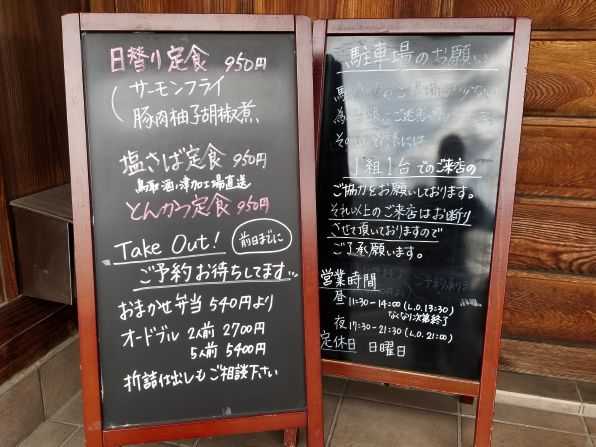 日替り定食 950円
サーモンフライ
豚肉柚子胡椒煮
塩さば定食 950円
鳥取 酒津加工場直送
とんかつ定食 950円
Take Out!
前日までに
ご予約お待ちしてます
おまかせ弁当 540円より
オードブル 2人前 2700円
5人前 5400円
折詰仕出しもご相談下さい
駐車場のお願い
1組1台でのご来店の
ご協力をお願いしております。
それ以上のご来店はお断り
させて頂いておりますので
ご了承願います。
営業時間
昼 11:30-14:00(L.O.13:30)
なくなり次第終了
夜 17:30-21:30(L.O.21:00)
定休日 日曜日